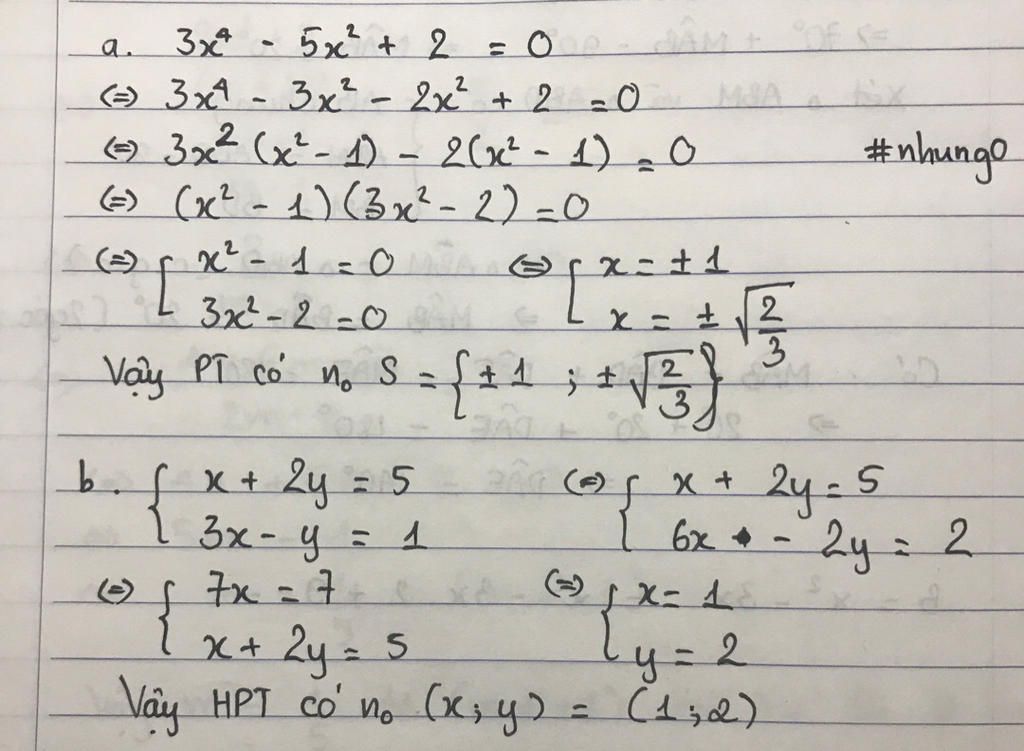 a. 3x⁴ - 5x² + 2 = 0
(=) 3x⁴ - 3x² - 2x² + 2 = 0
(=) 3x² (x² - 1) - 2(x² - 1) = 0 #nhung0
(=) (x² - 1)(3x² - 2) = 0
(=) [ x² - 1 = 0 (=) [ x = ± 1
3x² - 2 = 0 x = ± √(2/3)
Vậy PT có n₀ S = {± 1 ; ± √(2/3)}
b. { x + 2y = 5 (=) { x + 2y = 5
3x - y = 1 6x - 2y = 2
(=) { 7x = 7 (=) { x = 1
x + 2y = 5 y = 2
Vậy HPT có n₀ (x; y) = (1; 2)